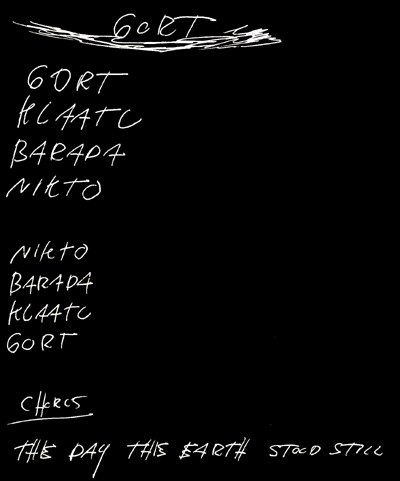 GORT
GORT
KLAATU
BARADA
NIKTO
NIKTO
BARADA
KLAATU
GORT
CHORUS
THE DAY THE EARTH STOOD STILL